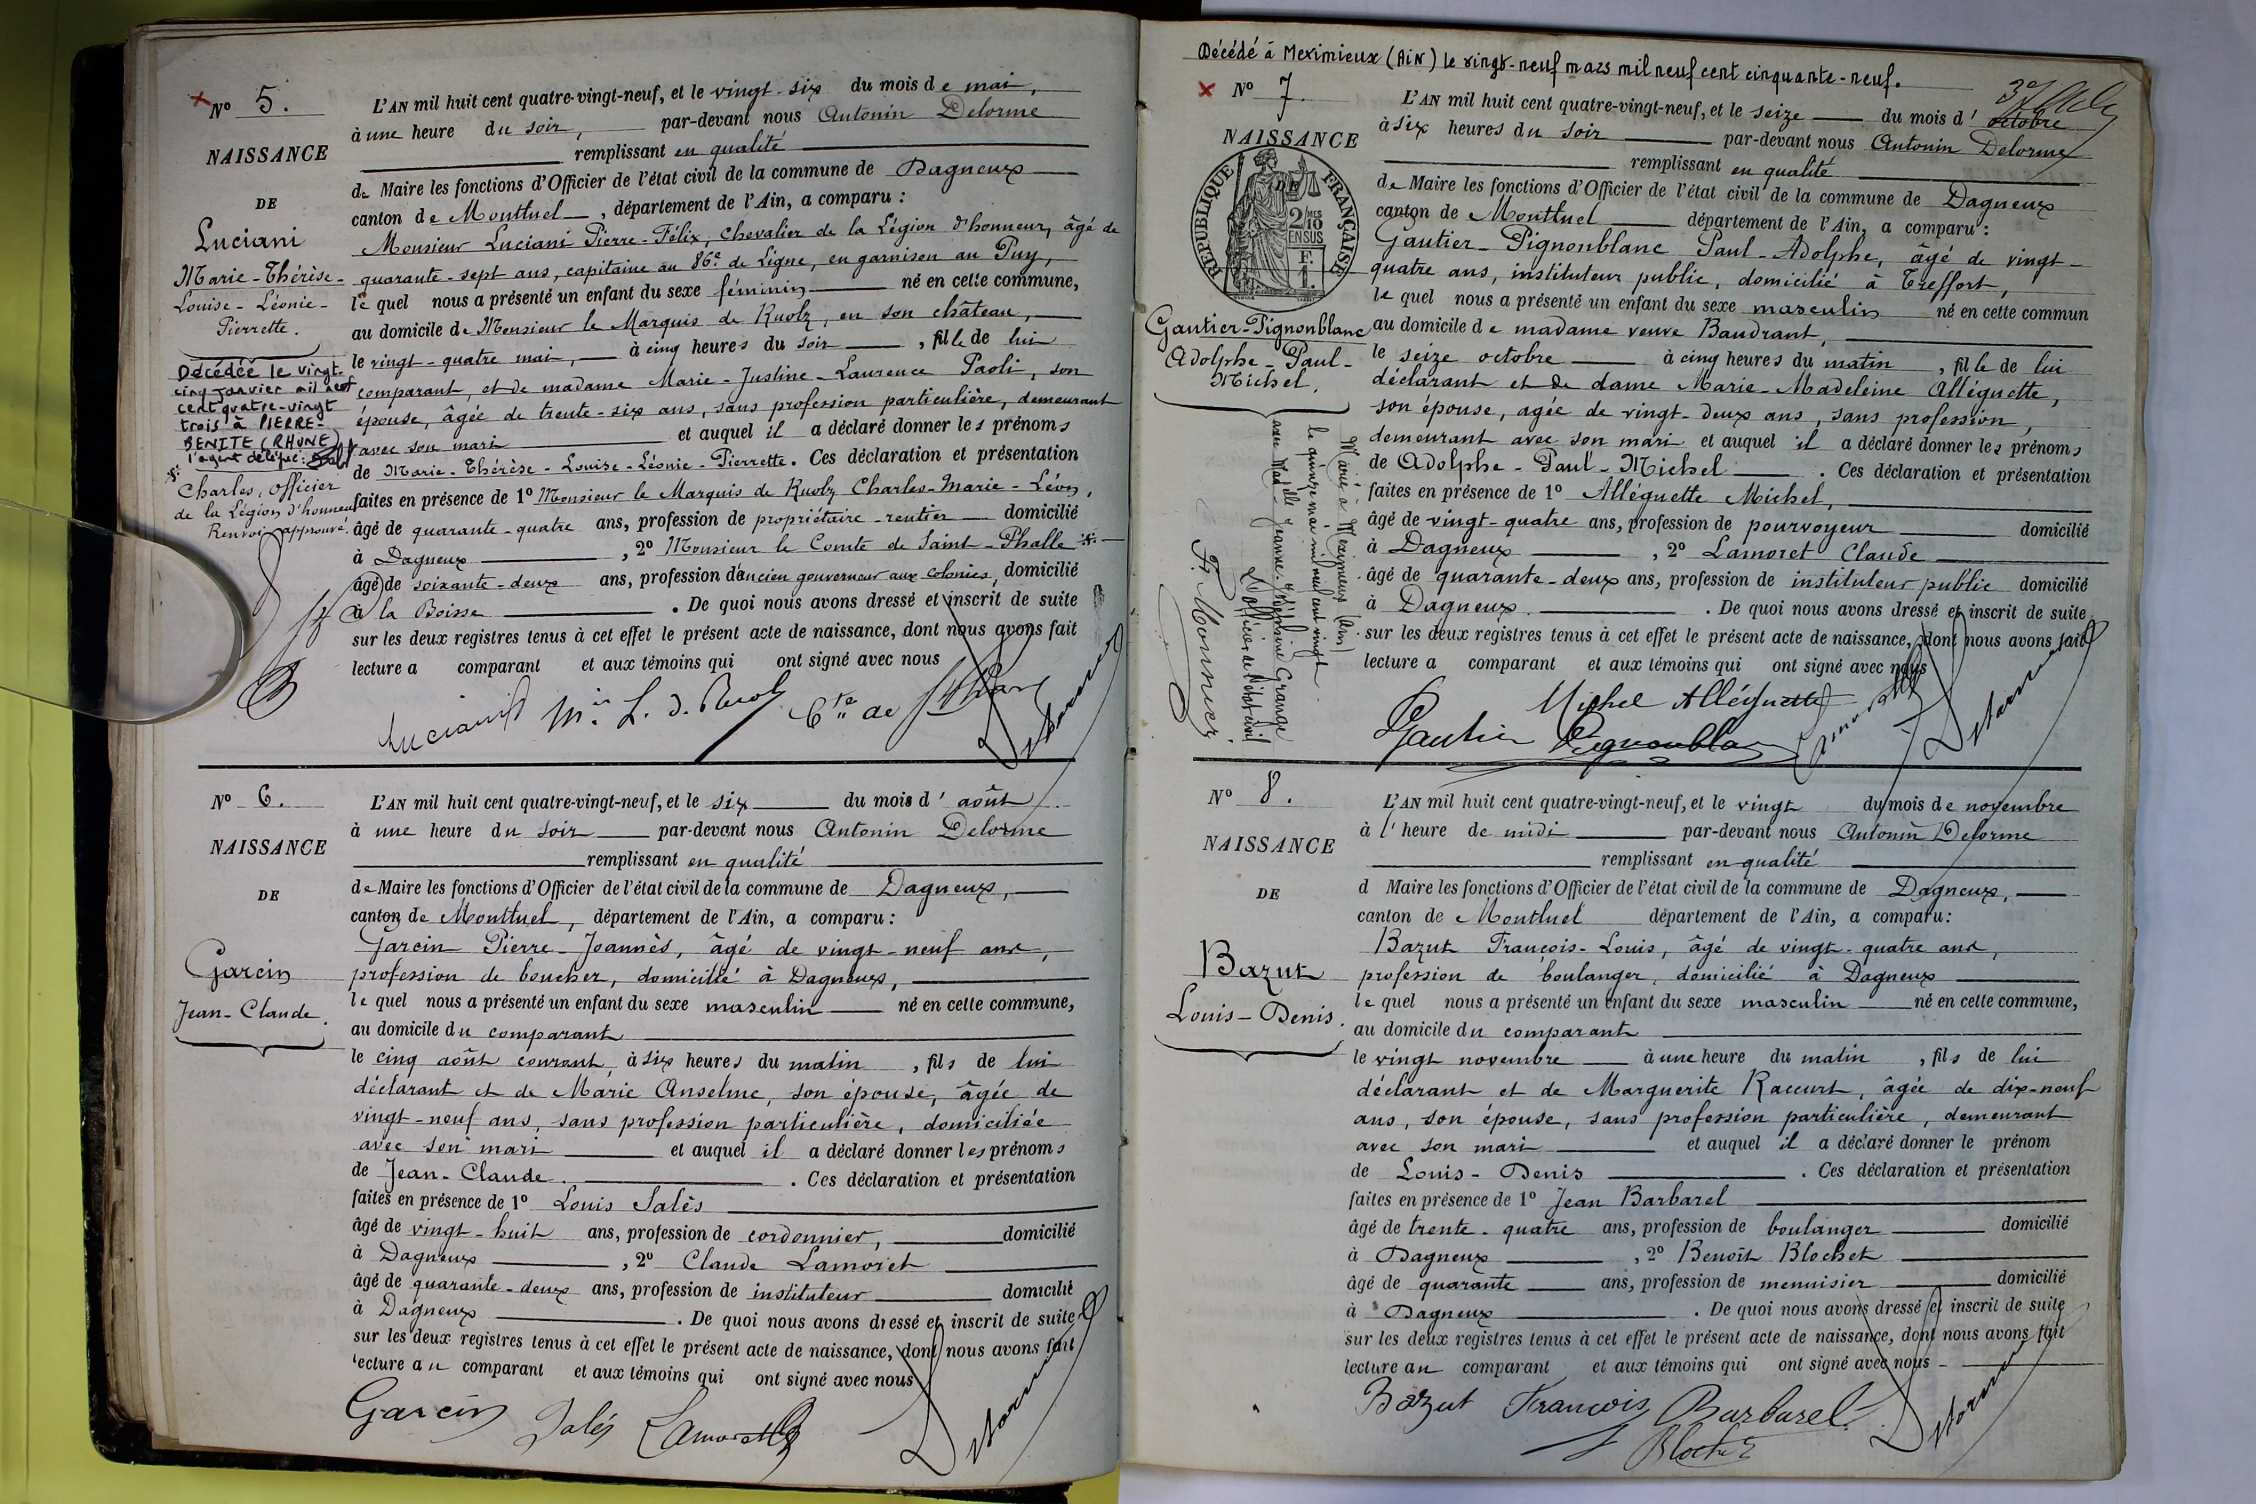 × N° 5.
NAISSANCE
DE
Luciani
Marie-Thérèse-
Louise-Léonie-
Pierrette.
Décédée le vingt-
cinq janvier mil neuf
cent quatre-vingt
trois à PIERRE-
BENITE (RHONE)
l'agent délégué:
※:
Charles, officier
de la Légion d'honneur
Renvoi approuvé.
L'AN mil huit cent quatre-vingt-neuf, et le vingt-six du mois de mai,
à une heure du soir, par-devant nous Antonin Delorme
remplissant en qualité
de Maire les fonctions d'Officier de l'état civil de la commune de Dagneux
canton de Montluel, département de l'Ain, a comparu :
Monsieur Luciani Pierre-Félix, Chevalier de la Légion d'honneur, âgé de
quarante-sept ans, capitaine au 86e de Ligne, en garnison au Puy,
le quel nous a présenté un enfant du sexe féminin né en cette commune,
au domicile de Monsieur le Marquis de Ruolz, en son château,
le vingt-quatre mai, à cinq heures du soir, fille de lui
comparant, et de madame Marie-Justine-Laurence Paoli, son
épouse, âgée de trente-six ans, sans profession particulière, demeurant
avec son mari et auquel il a déclaré donner les prénoms
de Marie-Thérèse-Louise-Léonie-Pierrette. Ces déclaration et présentation
faites en présence de 1° Monsieur le Marquis de Ruolz Charles-Marie-Léon,
âgé de quarante-quatre ans, profession de propriétaire-rentier domicilié
à Dagneux, 2° Monsieur le Comte de Saint-Phalle ※
âgé de soixante-deux ans, profession d'ancien gouverneur aux colonies, domicilié
à la Boisse. De quoi nous avons dressé et inscrit de suite
sur les deux registres tenus à cet effet le présent acte de naissance, dont nous avons fait
lecture a comparant et aux témoins qui ont signé avec nous
Luciani Mis L. d. Ruolz Cte de St Phalle Delorme
N° 6.
NAISSANCE
DE
Garcin
Jean-Claude.
L'AN mil huit cent quatre-vingt-neuf, et le six du mois d'août
à une heure du soir par-devant nous Antonin Delorme
remplissant en qualité
de Maire les fonctions d'Officier de l'état civil de la commune de Dagneux,
canton de Montluel, département de l'Ain, a comparu :
Garcin Pierre-Joannès, âgé de vingt-neuf ans,
profession de boucher, domicilié à Dagneux,
le quel nous a présenté un enfant du sexe masculin né en cette commune,
au domicile du comparant
le cinq août courant, à six heures du matin, fils de lui
déclarant et de Marie Anselme, son épouse, âgée de
vingt-neuf ans, sans profession particulière, domiciliée
avec son mari et auquel il a déclaré donner les prénoms
de Jean-Claude. Ces déclaration et présentation
faites en présence de 1° Louis Salès
âgé de vingt-huit ans, profession de cordonnier, domicilié
à Dagneux, 2° Claude Lamoret
âgé de quarante-deux ans, profession de instituteur domicilié
à Dagneux. De quoi nous avons dressé et inscrit de suite
sur les deux registres tenus à cet effet le présent acte de naissance, dont nous avons fait
lecture au comparant et aux témoins qui ont signé avec nous
Garcin Salès Lamoret Delorme
Décédé à Meximieux (Ain) le vingt-neuf mars mil neuf cent cinquante-neuf.
× N° 7.
NAISSANCE
DE
RÉPUBLIQUE FRANÇAISE
2/10 MES
EN SUS
F.
1.
Gautier-Pignonblanc
Adolphe-Paul-
Michel.
Marié à Meximieux (Ain)
le quinze mai mil neuf cent vingt
avec Madelle Jeanne Joséphine Grange
L'officier de l'état civil
Ft Monnier
L'AN mil huit cent quatre-vingt-neuf, et le seize du mois d'octobre
à six heures du soir par-devant nous Antonin Delorme
remplissant en qualité
de Maire les fonctions d'Officier de l'état civil de la commune de Dagneux
canton de Montluel département de l'Ain, a comparu :
Gautier-Pignonblanc Paul-Adolphe, âgé de vingt-
quatre ans, instituteur public, domicilié à Treffort,
le quel nous a présenté un enfant du sexe masculin né en cette commun
au domicile de madame veuve Baudrant,
le seize octobre à cinq heures du matin, fille de lui
déclarant et de dame Marie-Madeleine Alléguette,
son épouse, agée de vingt-deux ans, sans profession,
demeurant avec son mari et auquel il a déclaré donner les prénoms
de Adolphe-Paul-Michel. Ces déclaration et présentation
faites en présence de 1° Alléguette Michel,
âgé de vingt-quatre ans, profession de pourvoyeur domicilié
à Dagneux, 2° Lamoret Claude
âgé de quarante-deux ans, profession de instituteur public domicilié
à Dagneux. De quoi nous avons dressé et inscrit de suite
sur les deux registres tenus à cet effet le présent acte de naissance, dont nous avons fait
lecture a comparant et aux témoins qui ont signé avec nous
Michel Alléguette
Gautier Pignonblanc Lamoret Delorme
N° 8.
NAISSANCE
DE
Bazut
Louis-Denis.
L'AN mil huit cent quatre-vingt-neuf, et le vingt du mois de novembre
à l'heure de midi par-devant nous Antonin Delorme
remplissant en qualité
d Maire les fonctions d'Officier de l'état civil de la commune de Dagneux,
canton de Montluel département de l'Ain, a comparu:
Bazut François-Louis, âgé de vingt-quatre ans,
profession de boulanger, domicilié à Dagneux
le quel nous a présenté un enfant du sexe masculin né en cette commune,
au domicile du comparant
le vingt novembre à une heure du matin, fils de lui
déclarant et de Marguerite Raccurt, âgée de dix-neuf
ans, son épouse, sans profession particulière, demeurant
avec son mari et auquel il a déclaré donner le prénom
de Louis-Denis. Ces déclaration et présentation
faites en présence de 1° Jean Barbarel
âgé de trente-quatre ans, profession de boulanger domicilié
à Dagneux, 2° Benoît Blochet
âgé de quarante ans, profession de menuisier domicilié
à Dagneux. De quoi nous avons dressé et inscrit de suite
sur les deux registres tenus à cet effet le présent acte de naissance, dont nous avons fait
lecture au comparant et aux témoins qui ont signé avec nous
Bazut François Barbarel Delorme
Blochet